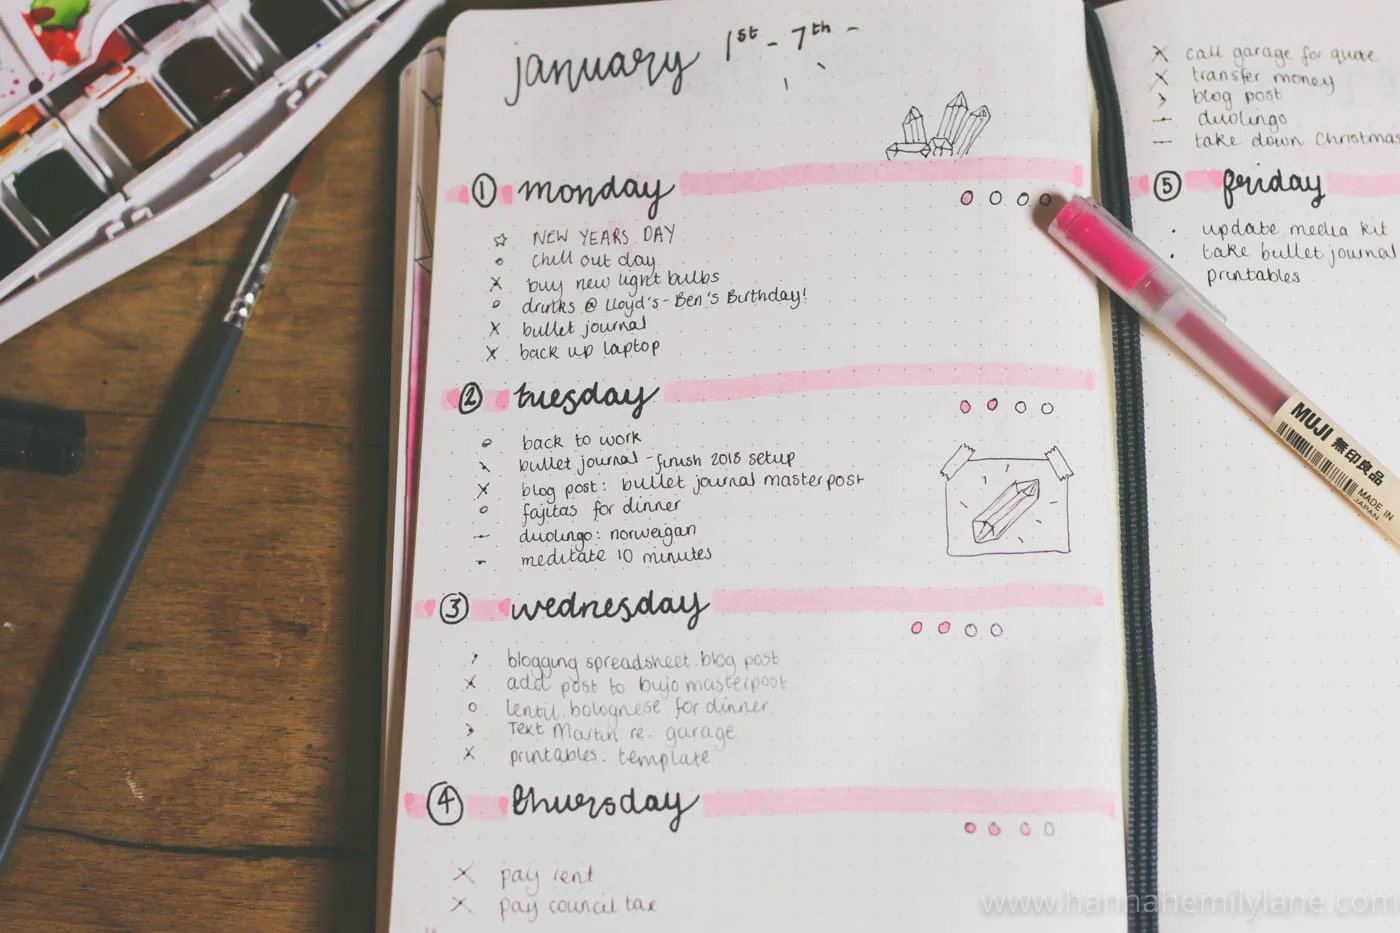 january 1st - 7th -
1 monday
NEW YEARS DAY
chill out day
buy new light bulbs
drinks @ Lloyd's - Ben's Birthday!
bullet journal
back up laptop
2 tuesday
back to work
bullet journal - finish 2018 setup
blog post: bullet journal masterpost
fajitas for dinner
duolingo: norweigan
meditate 10 minutes
3 wednesday
blogging spreadsheet blog post
add post to bujo masterpost
lentil bolognese for dinner
Text Martin re. garage
printables template
4 thursday
pay rent
pay council tax
call garage for quote
transfer money
blog post
duolingo
take down Christmas
5 friday
update media kit
take bullet journal
printables
MUJI 無印良品
MADE IN
JAPAN
www.hannahemilylane.com